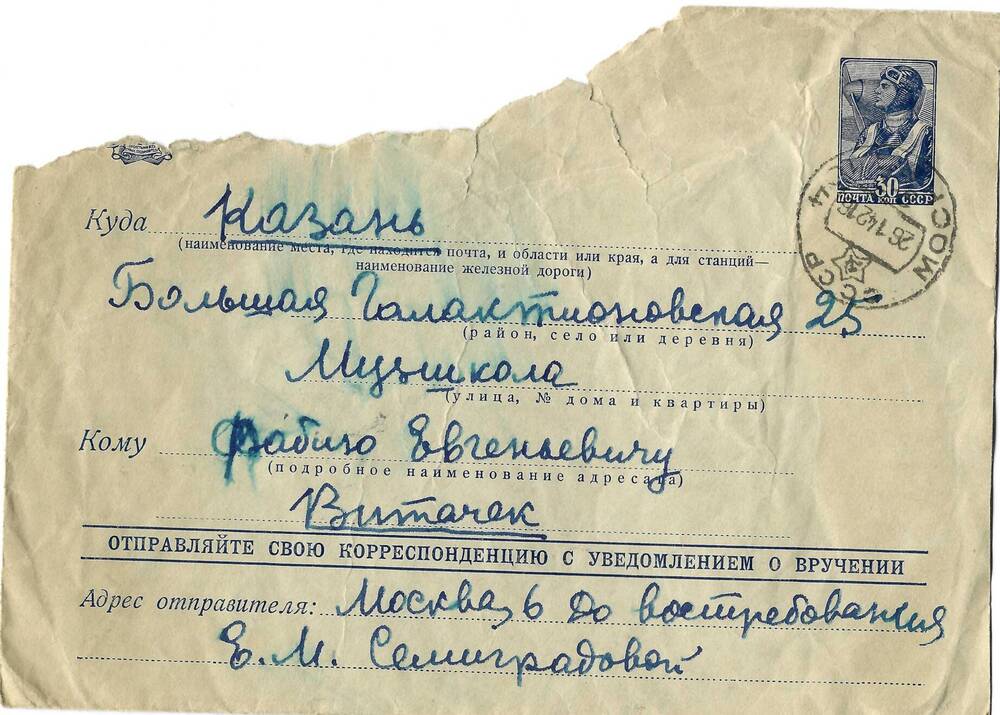 30
ПОЧТА КОП СССР
МОСКВА
26 1 42
СССР
Куда Казань
(наименование места, где находится почта, и области или края, а для станций—
наименование железной дороги)
Большая Галактионовская 25
(район, село или деревня)
Музшкола
(улица, № дома и квартиры)
Кому Фабию Евгеньевичу
(подробное наименование адресата)
Витачек
ОТПРАВЛЯЙТЕ СВОЮ КОРРЕСПОНДЕНЦИЮ С УВЕДОМЛЕНИЕМ О ВРУЧЕНИИ
Адрес отправителя: Москва, 6 До востребования
Е. М. Семиградовой